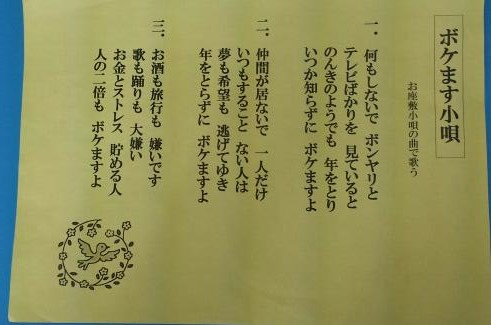 ボケます小唄
お座敷小唄の曲で歌う
一．何もしないで ボンヤリと
テレビばかりを 見ていると
のんきのようでも 年をとり
いつか知らずに ボケますよ
二．仲間が居ないで 一人だけ
いつもすること ない人は
夢も希望も 逃げてゆき
年をとらずに ボケますよ
三．お酒も旅行も 嫌いです
歌も踊りも 大嫌い
お金とストレス 貯める人
人の二倍も ボケますよ